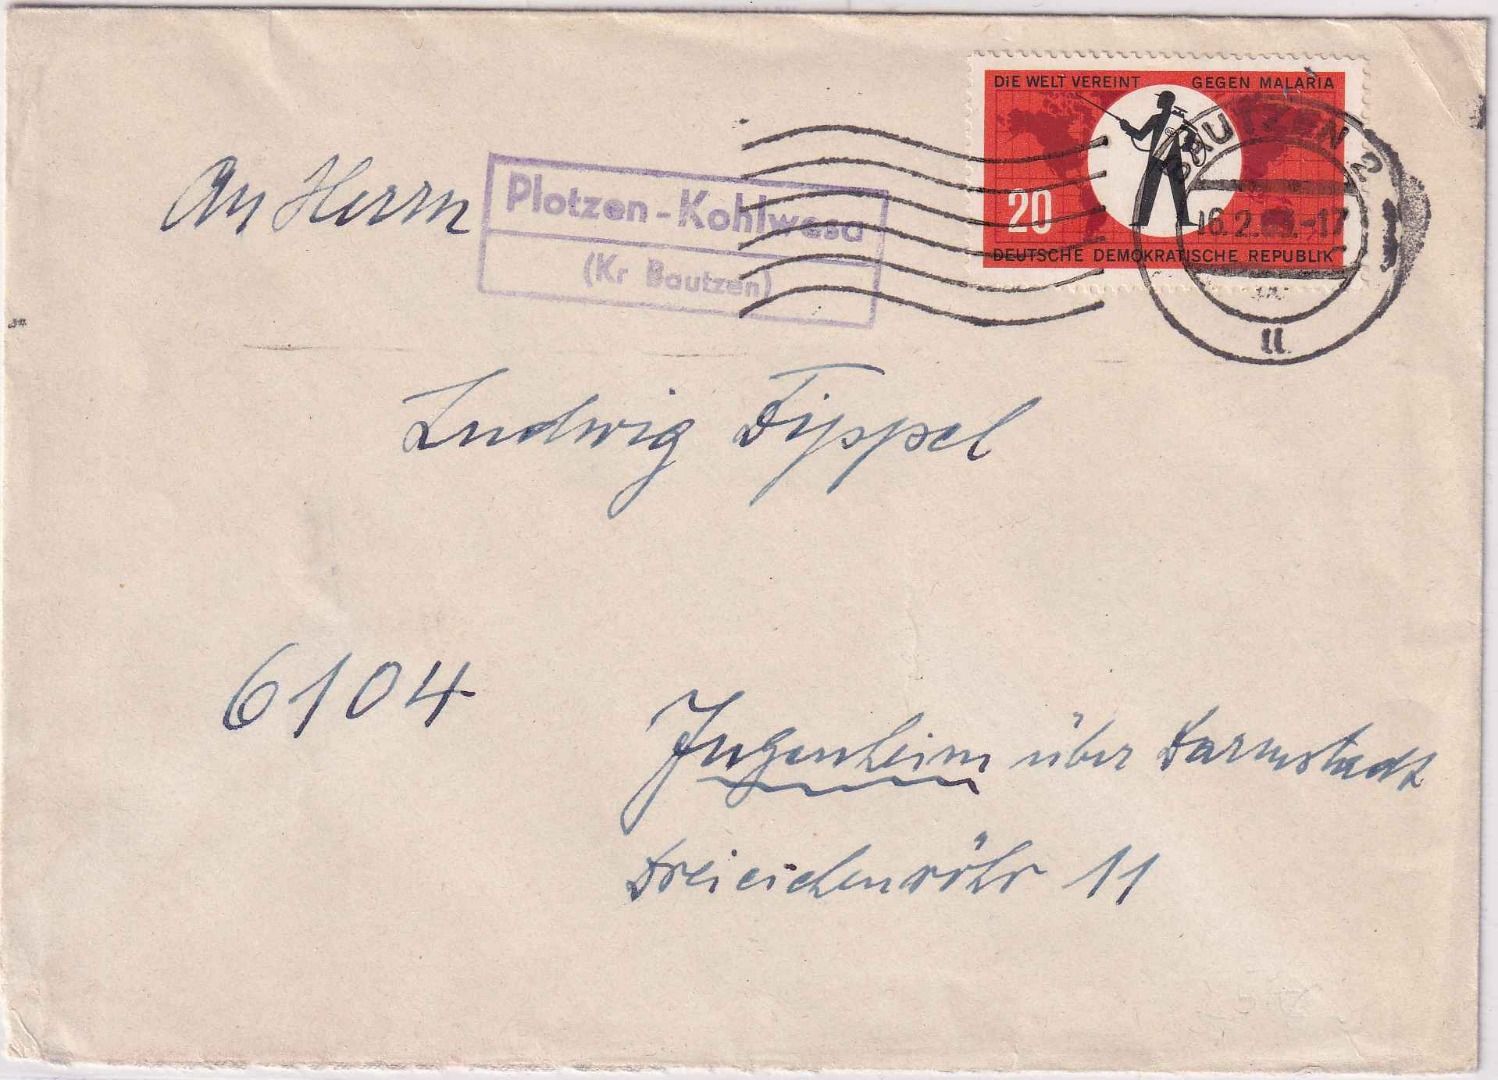 DIE WELT VEREINT GEGEN MALARIA
20
DEUTSCHE DEMOKRATISCHE REPUBLIK
BAUTZEN 2
16.2. -17
u
Plotzen-Kohlwesa
(Kr Bautzen)
An Herrn
Ludwig Fippel
6104
Jugenheim über Darmstadt
Dreieichenröhr 11